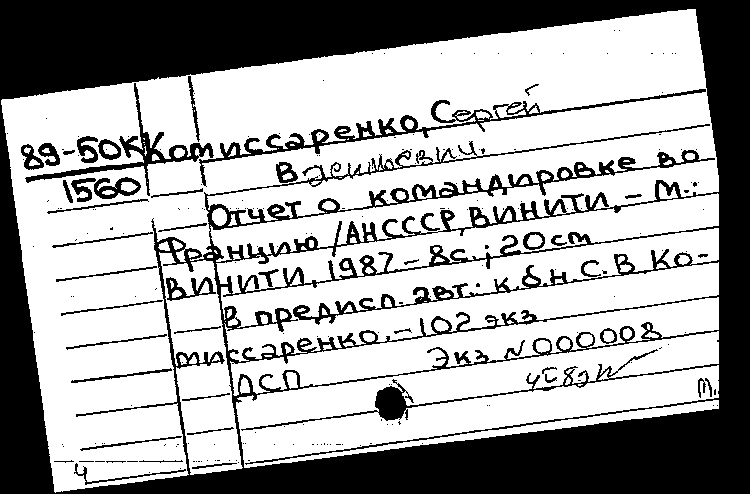 89-50К Комиссаренко, Сергей
1560 Васильевич.
Отчет о командировке во
Францию /АНСССР, ВИНИТИ, - М.:
ВИНИТИ, 1987. - 8с.; 20см
В предисл. авт.: к.б.н. С.В Ко-
миссаренко. - 102 экз
ДСП. Экз N000008
М.
4